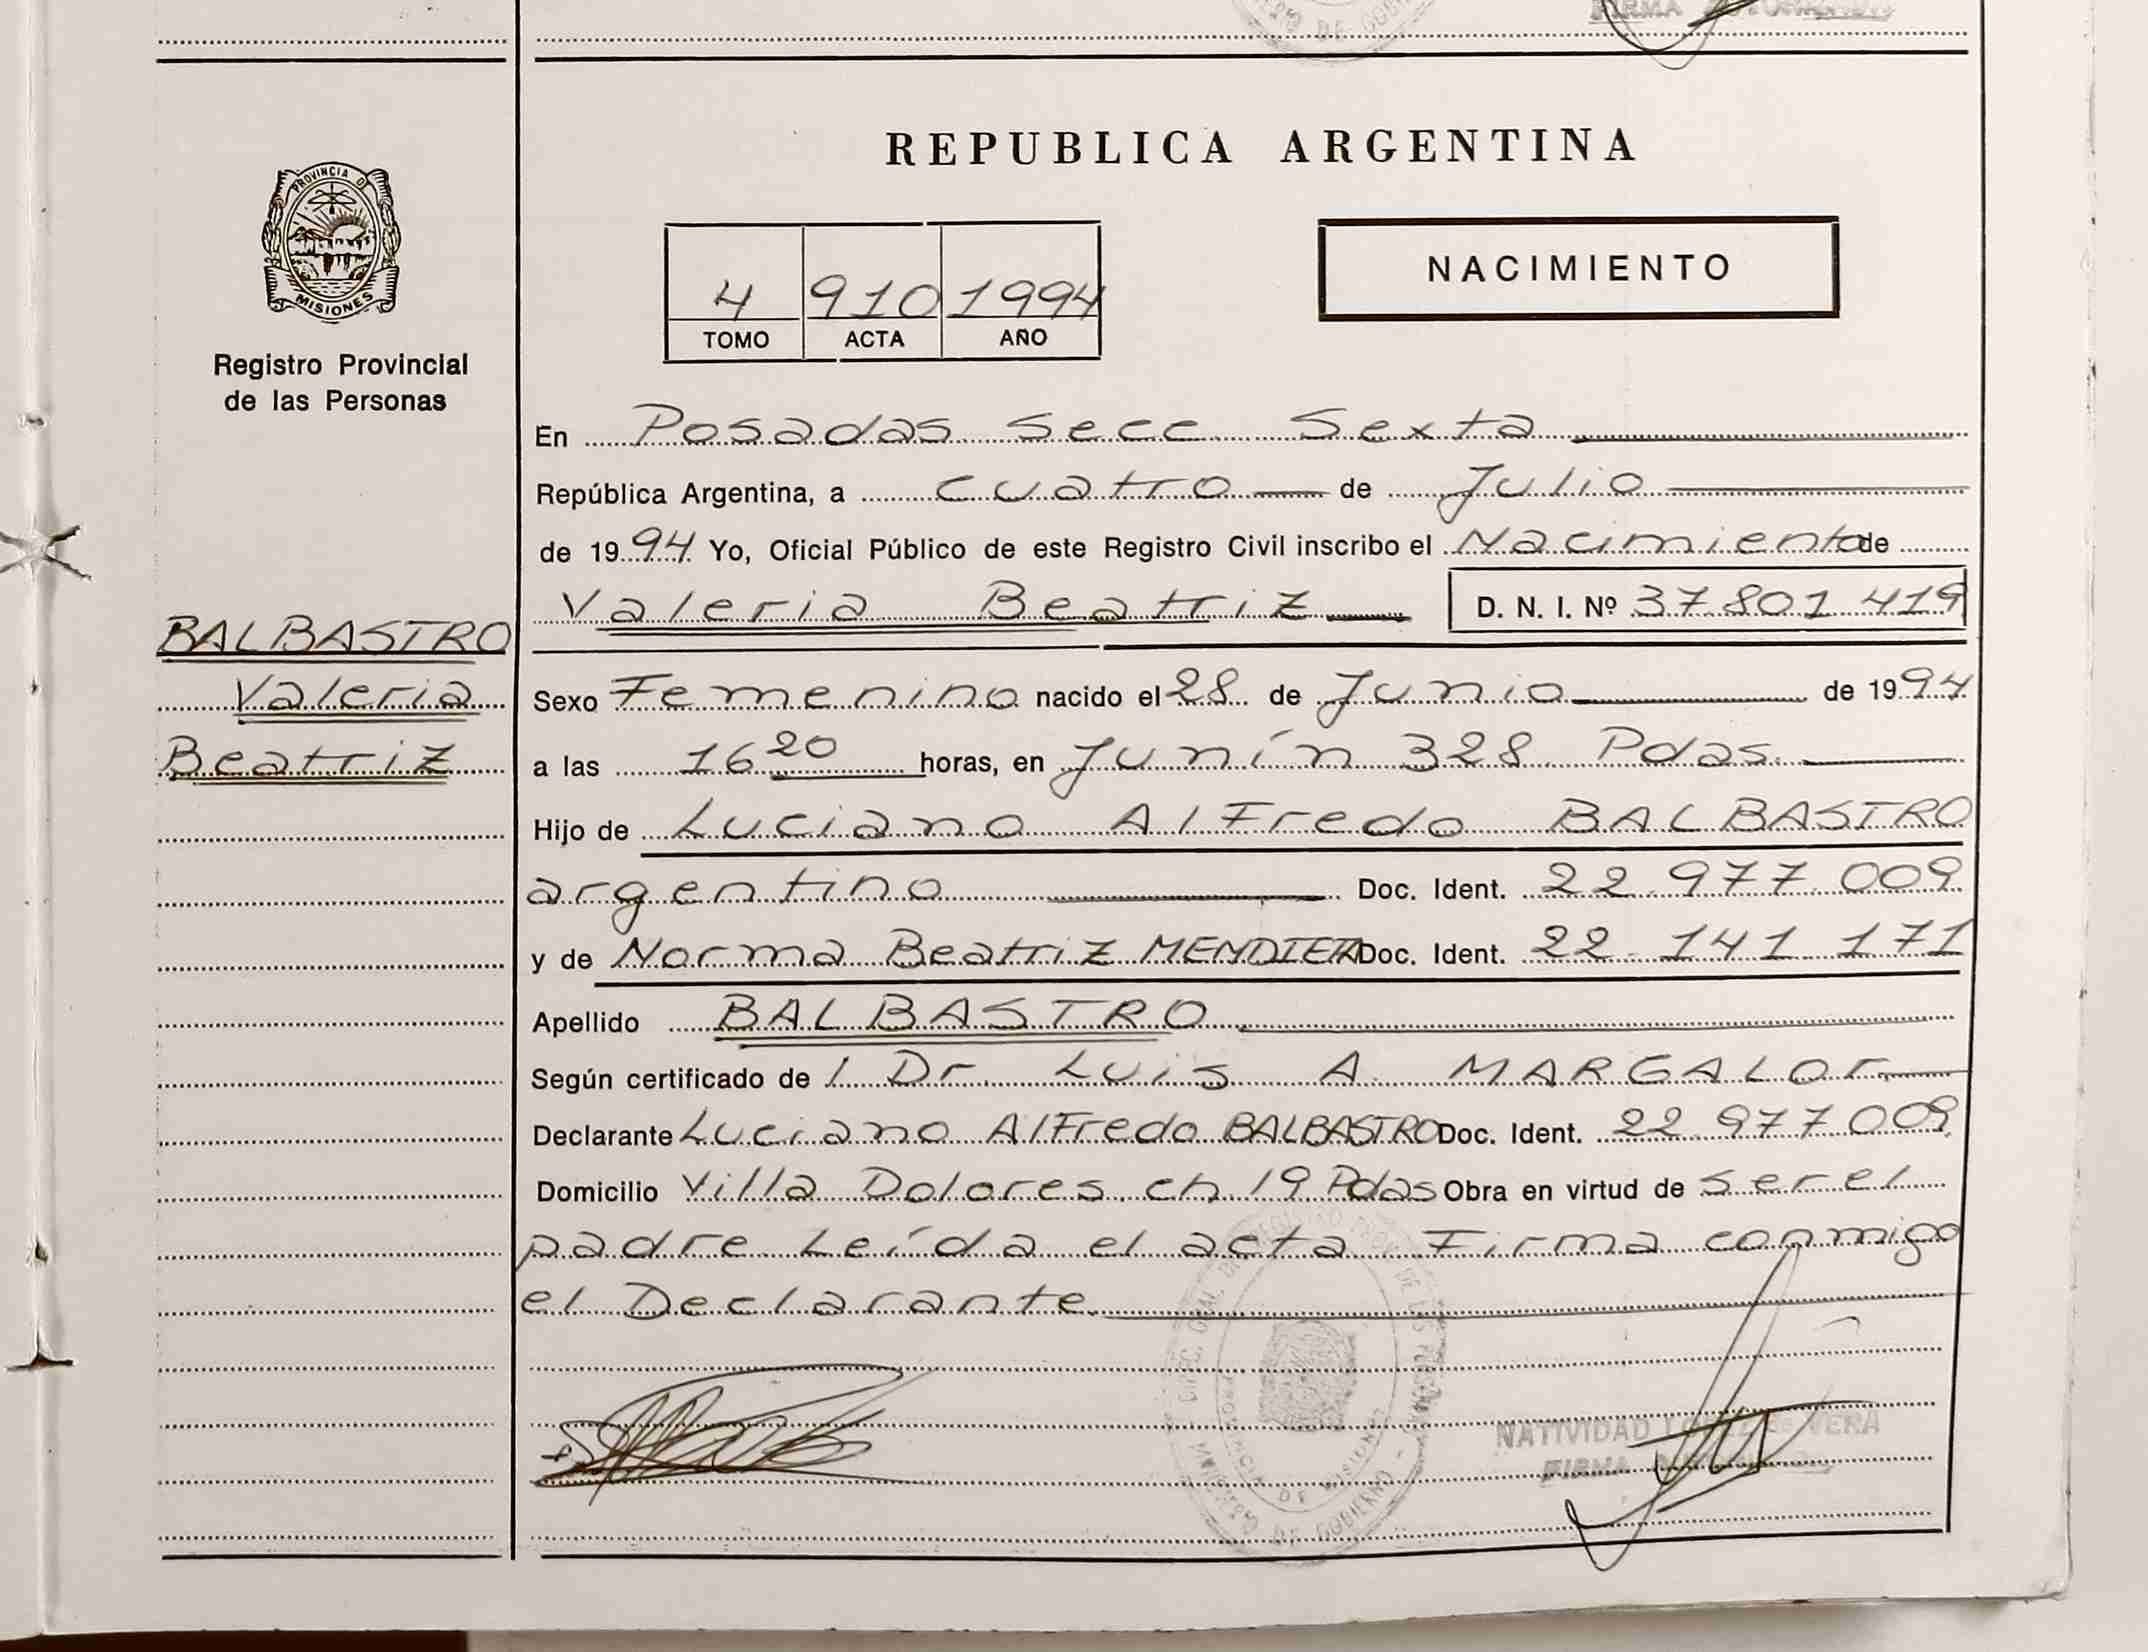 FIRMA AUTORIZADA
DE GOBI
REPUBLICA ARGENTINA
PROVINCIA D
MISIONES
Registro Provincial
de las Personas
4 910 1994
TOMO ACTA AÑO
NACIMIENTO
En Posadas Secc Sexta
República Argentina, a cuatro de Julio
de 1994 Yo, Oficial Público de este Registro Civil inscribo el Nacimiento de
Valeria Beatriz D. N. I. Nº 37 801 419
BALBASTRO
Valeria
Beatriz
Sexo Femenino nacido el 28 de Junio de 1994
a las 16 20 horas, en Junín 328 Pdas.
Hijo de Luciano Alfredo BALBASTRO
argentino Doc. Ident. 22.977.009
y de Norma Beatriz MENDIETA Doc. Ident. 22 141 171
Apellido BALBASTRO
Según certificado de / Dr. Luis A. MARGALOT
Declarante Luciano Alfredo BALBASTRO Doc. Ident. 22 977 009
Domicilio Villa Dolores ch 19 Pdas Obra en virtud de ser el
padre Leída el acta Firma conmigo
el Declarante.
DIREC. GRAL. DE REGISTRO PROV. DE LAS PERSONAS
PROVINCIA DE MISIONES
MINISTRO DE GOBIERNO
NATIVIDAD VERA
FIRMA